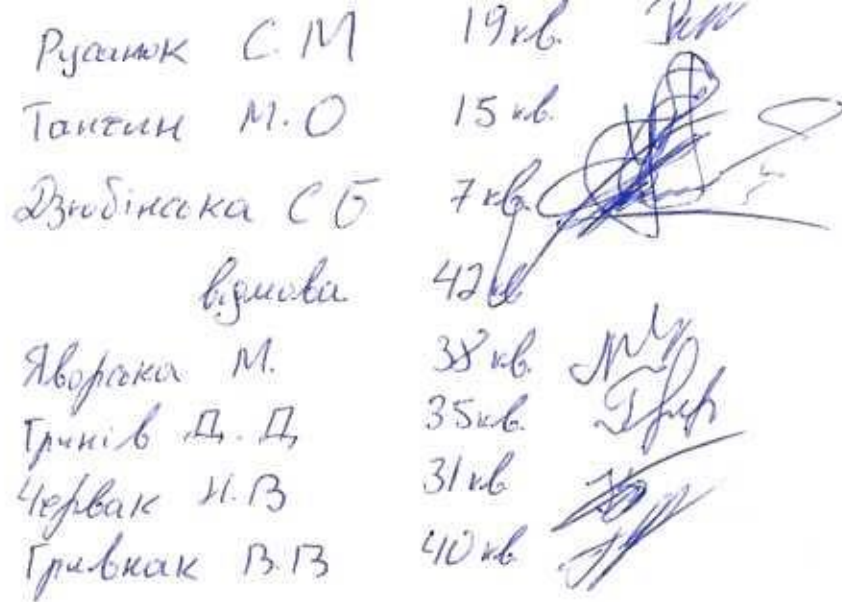 Русанюк С.М 19 кв.
М.О 15 кв.
Дзюбінська С Б 7 кв.
відмова 42 кв
Яворська М. 38 кв.
Гринів Д. Д 35 кв.
Червак Н.В 31 кв
Гривнак В.В 40 кв